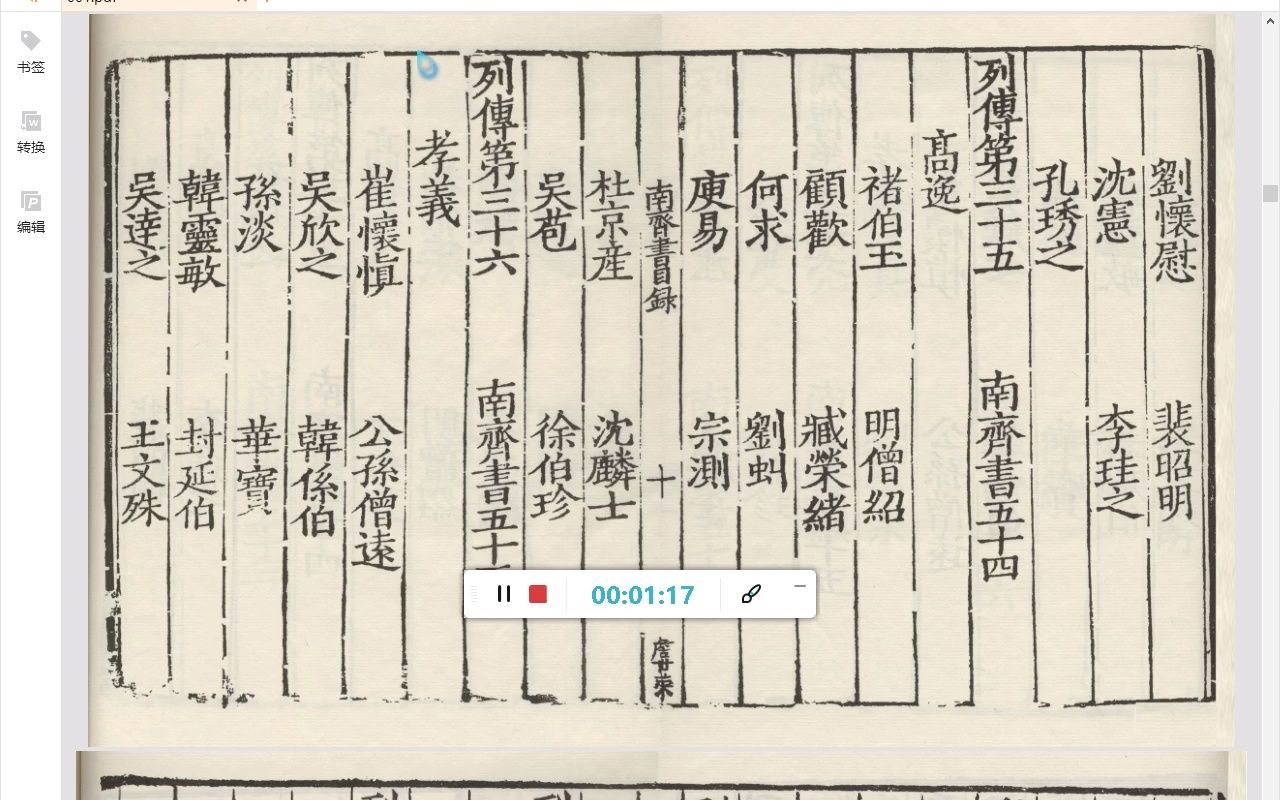 书签
转换
编辑
劉懷慰 裴昭明
沈憲 李珪之
孔琇之
列傳第三十五 南齊書五十四
高逸
褚伯玉 明僧紹
顧歡 臧榮緒
何求 劉虯
庾易 宗測
南齊書目録 十
杜京産 沈麟士
吴苞 徐伯珍
列傳第三十六 南齊書五十
孝義
崔懷愼 公孫僧遠
吴欣之 韓係伯
孫淡 華寶
韓靈敏 封延伯
吴逹之 王文殊
00:01:17